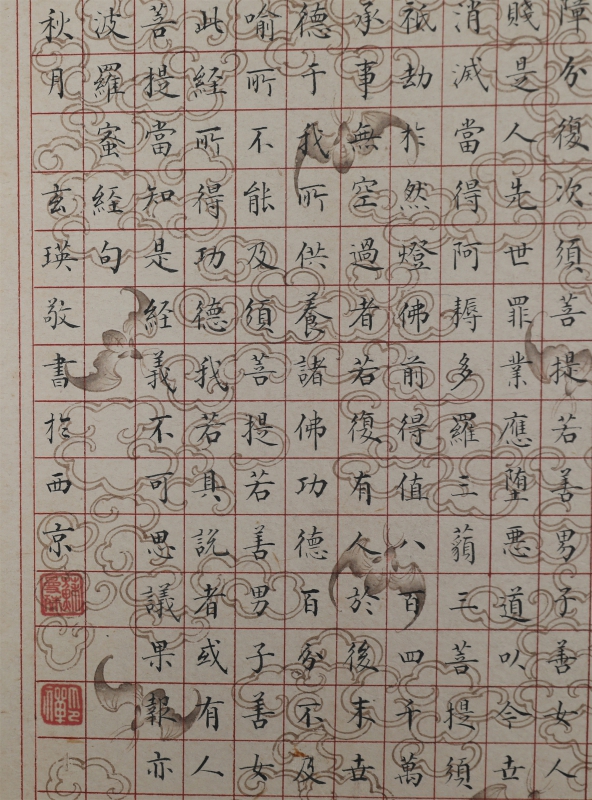 障分復次須菩提若善男子善女人
賤是人先世罪業應墮惡道以今世
消滅當得阿耨多羅三藐三菩提須
祇劫於然燈佛前得值八百四千萬
承事無空過者若復有人於後末世
德于我所供養諸佛功德百分不及
喻所不能及須菩提若善男子善女
此經所得功德我若具說者或有人
菩提當知是經義不可思議果報亦
波羅蜜經句
秋月玄瑛敬書於西京